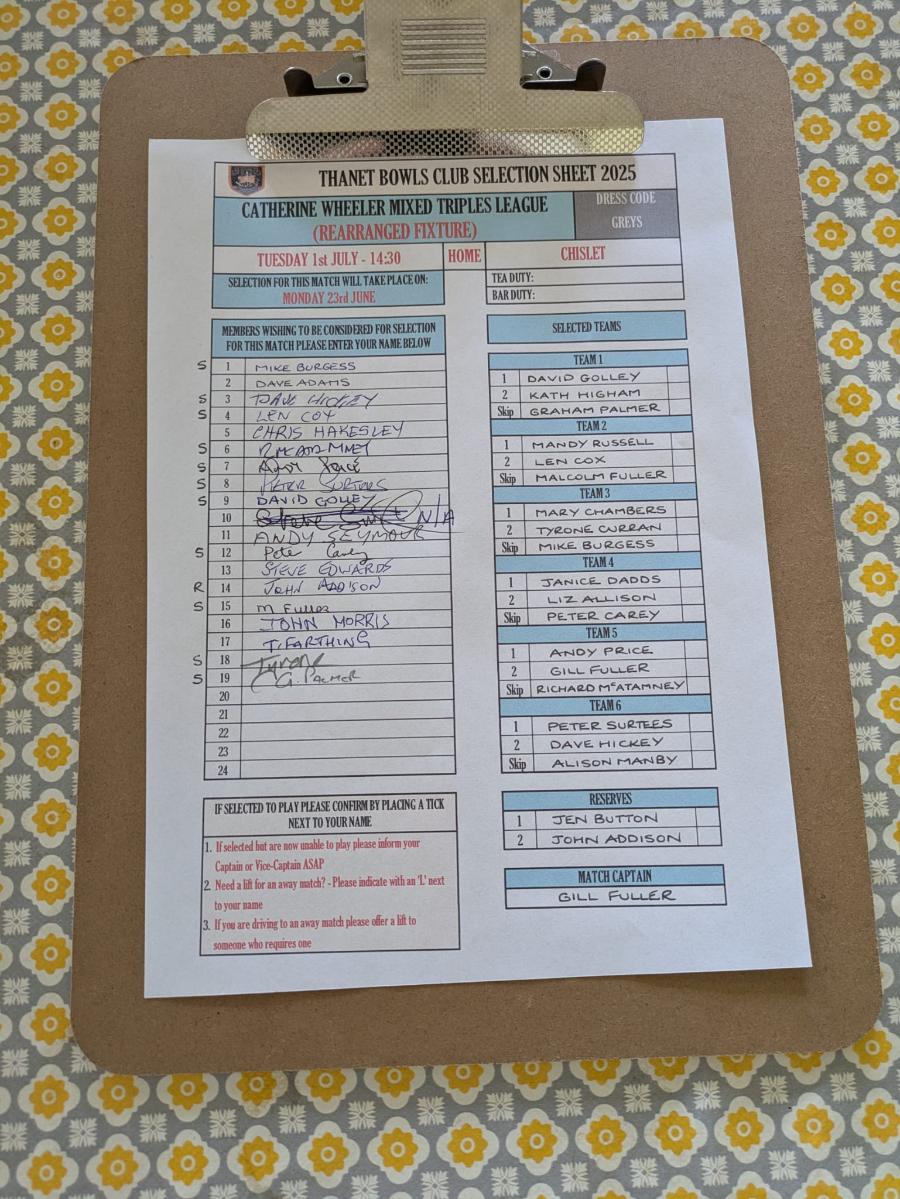 THANET BOWLS CLUB SELECTION SHEET 2025
CATHERINE WHEELER MIXED TRIPLES LEAGUE
(REARRANGED FIXTURE)
DRESS CODE
GREYS
TUESDAY 1st JULY - 14:30
HOME
CHISLET
SELECTION FOR THIS MATCH WILL TAKE PLACE ON:
MONDAY 23rd JUNE
TEA DUTY:
BAR DUTY:
MEMBERS WISHING TO BE CONSIDERED FOR SELECTION
FOR THIS MATCH PLEASE ENTER YOUR NAME BELOW
S 1 MIKE BURGESS
2 DAVE ADAMS
S 3 DAVE HICKEY
S 4 LEN COX
5 CHRIS HAKESLEY
S 6 R MCATAMNEY
S 7 Andy Price
S 8 PETER SURTEES
S 9 DAVID GOLLEY
10 Steve N/A
11 ANDY SEYMOUR
S 12 Pete Carey
13 STEVE EDWARDS
R 14 JOHN ADDISON
S 15 M Fuller
16 JOHN MORRIS
17 T. FARTHING
S 18 Tyrone
S 19 G. PALMER
20
21
22
23
24
SELECTED TEAMS
TEAM 1
1 DAVID GOLLEY
2 KATH HIGHAM
Skip GRAHAM PALMER
TEAM 2
1 MANDY RUSSELL
2 LEN COX
Skip MALCOLM FULLER
TEAM 3
1 MARY CHAMBERS
2 TYRONE CURRAN
Skip MIKE BURGESS
TEAM 4
1 JANICE DADDS
2 LIZ ALLISON
Skip PETER CAREY
TEAM 5
1 ANDY PRICE
2 GILL FULLER
Skip RICHARD McATAMNEY
TEAM 6
1 PETER SURTEES
2 DAVE HICKEY
Skip ALISON MANBY
RESERVES
1 JEN BUTTON
2 JOHN ADDISON
MATCH CAPTAIN
GILL FULLER
IF SELECTED TO PLAY PLEASE CONFIRM BY PLACING A TICK
NEXT TO YOUR NAME
1. If selected but are now unable to play please inform your
Captain or Vice-Captain ASAP
2. Need a lift for an away match? - Please indicate with an 'L' next
to your name
3. If you are driving to an away match please offer a lift to
someone who requires one